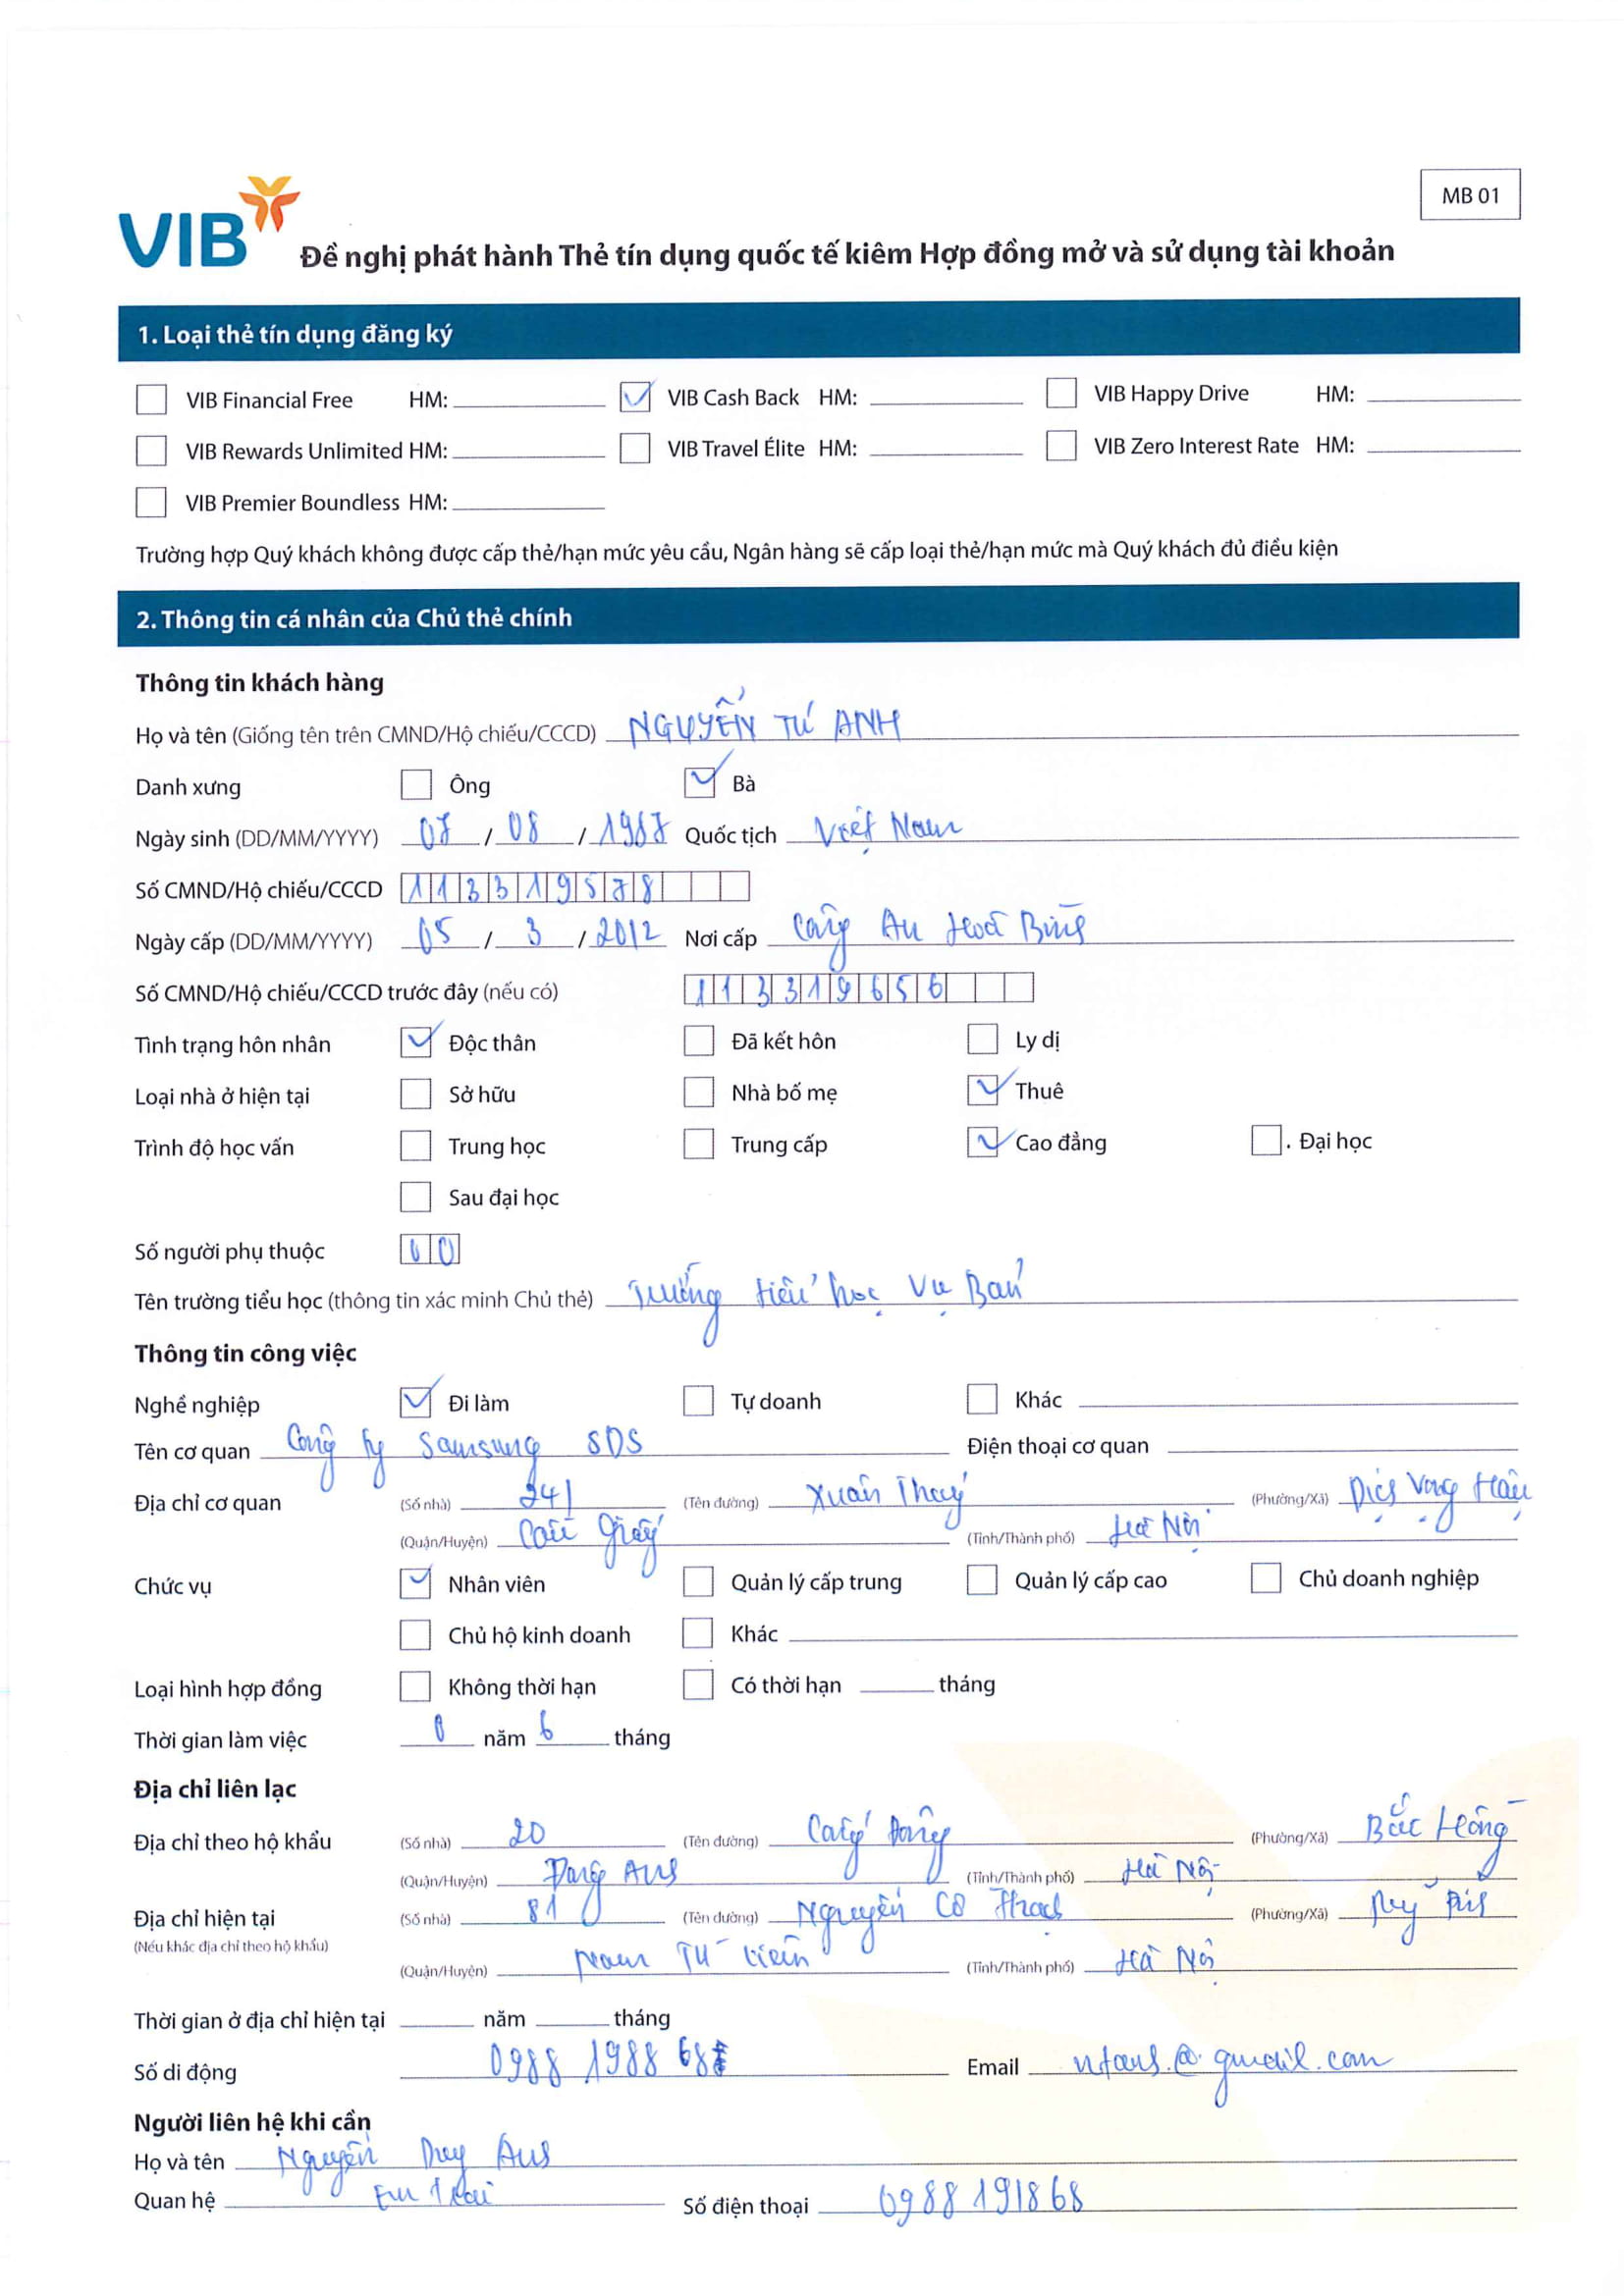 MB 01
VIB
Đề nghị phát hành Thẻ tín dụng quốc tế kiêm Hợp đồng mở và sử dụng tài khoản
1. Loại thẻ tín dụng đăng ký
VIB Financial Free HM: VIB Cash Back HM: VIB Happy Drive HM:
VIB Rewards Unlimited HM: VIB Travel Élite HM: VIB Zero Interest Rate HM:
VIB Premier Boundless HM:
Trường hợp Quý khách không được cấp thẻ/hạn mức yêu cầu, Ngân hàng sẽ cấp loại thẻ/hạn mức mà Quý khách đủ điều kiện
2. Thông tin cá nhân của Chủ thẻ chính
Thông tin khách hàng
Họ và tên (Giống tên trên CMND/Hộ chiếu/CCCD) NGUYỄN TÚ ANH
Danh xưng Ông Bà
Ngày sinh (DD/MM/YYYY) 07 / 08 / 1987 Quốc tịch Việt Nam
Số CMND/Hộ chiếu/CCCD 113319578
Ngày cấp (DD/MM/YYYY) 05 / 3 / 2012 Nơi cấp Công An Hoà Bình
Số CMND/Hộ chiếu/CCCD trước đây (nếu có) 113319656
Tình trạng hôn nhân Độc thân Đã kết hôn Ly dị
Loại nhà ở hiện tại Sở hữu Nhà bố mẹ Thuê
Trình độ học vấn Trung học Trung cấp Cao đẳng Đại học
Sau đại học
Số người phụ thuộc 00
Tên trường tiểu học (thông tin xác minh Chủ thẻ) Trường tiểu học Vụ Bản
Thông tin công việc
Nghề nghiệp Đi làm Tự doanh Khác
Tên cơ quan Công ty Samsung SDS Điện thoại cơ quan
Địa chỉ cơ quan (Số nhà) 241 (Tên đường) Xuân Thuỷ (Phường/Xã) Dịch Vọng Hậu
(Quận/Huyện) Cầu Giấy (Tỉnh/Thành phố) Hà Nội
Chức vụ Nhân viên Quản lý cấp trung Quản lý cấp cao Chủ doanh nghiệp
Chủ hộ kinh doanh Khác
Loại hình hợp đồng Không thời hạn Có thời hạn tháng
Thời gian làm việc 0 năm 6 tháng
Địa chỉ liên lạc
Địa chỉ theo hộ khẩu (Số nhà) 20 (Tên đường) (Phường/Xã) Bắc Hồng
(Quận/Huyện) Đông Anh (Tỉnh/Thành phố) Hà Nội
Địa chỉ hiện tại (Số nhà) 81 (Tên đường) Nguyễn Cơ Thạch (Phường/Xã)
(Nếu khác địa chỉ theo hộ khẩu)
(Quận/Huyện) Nam Từ Liêm (Tỉnh/Thành phố) Hà Nội
Thời gian ở địa chỉ hiện tại năm tháng
Số di động 0988 1988 68 Email ntanh.@.gmail.com
Người liên hệ khi cần
Họ và tên Nguyễn Duy Anh
Quan hệ Em trai Số điện thoại 0988191868